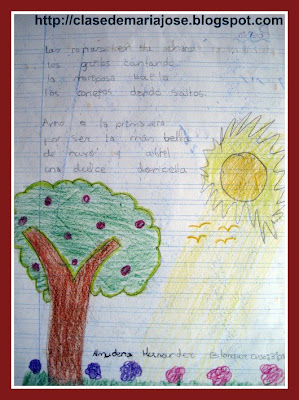 http://clasedemariajose.blogspot.com
Las
los grillos cantando
la mariposa vuela
los conejos dando saltos.
Amo a la primavera
por ser la más bella
de mayo y abril
una dulce doncella
Almudena Hernández Blanque